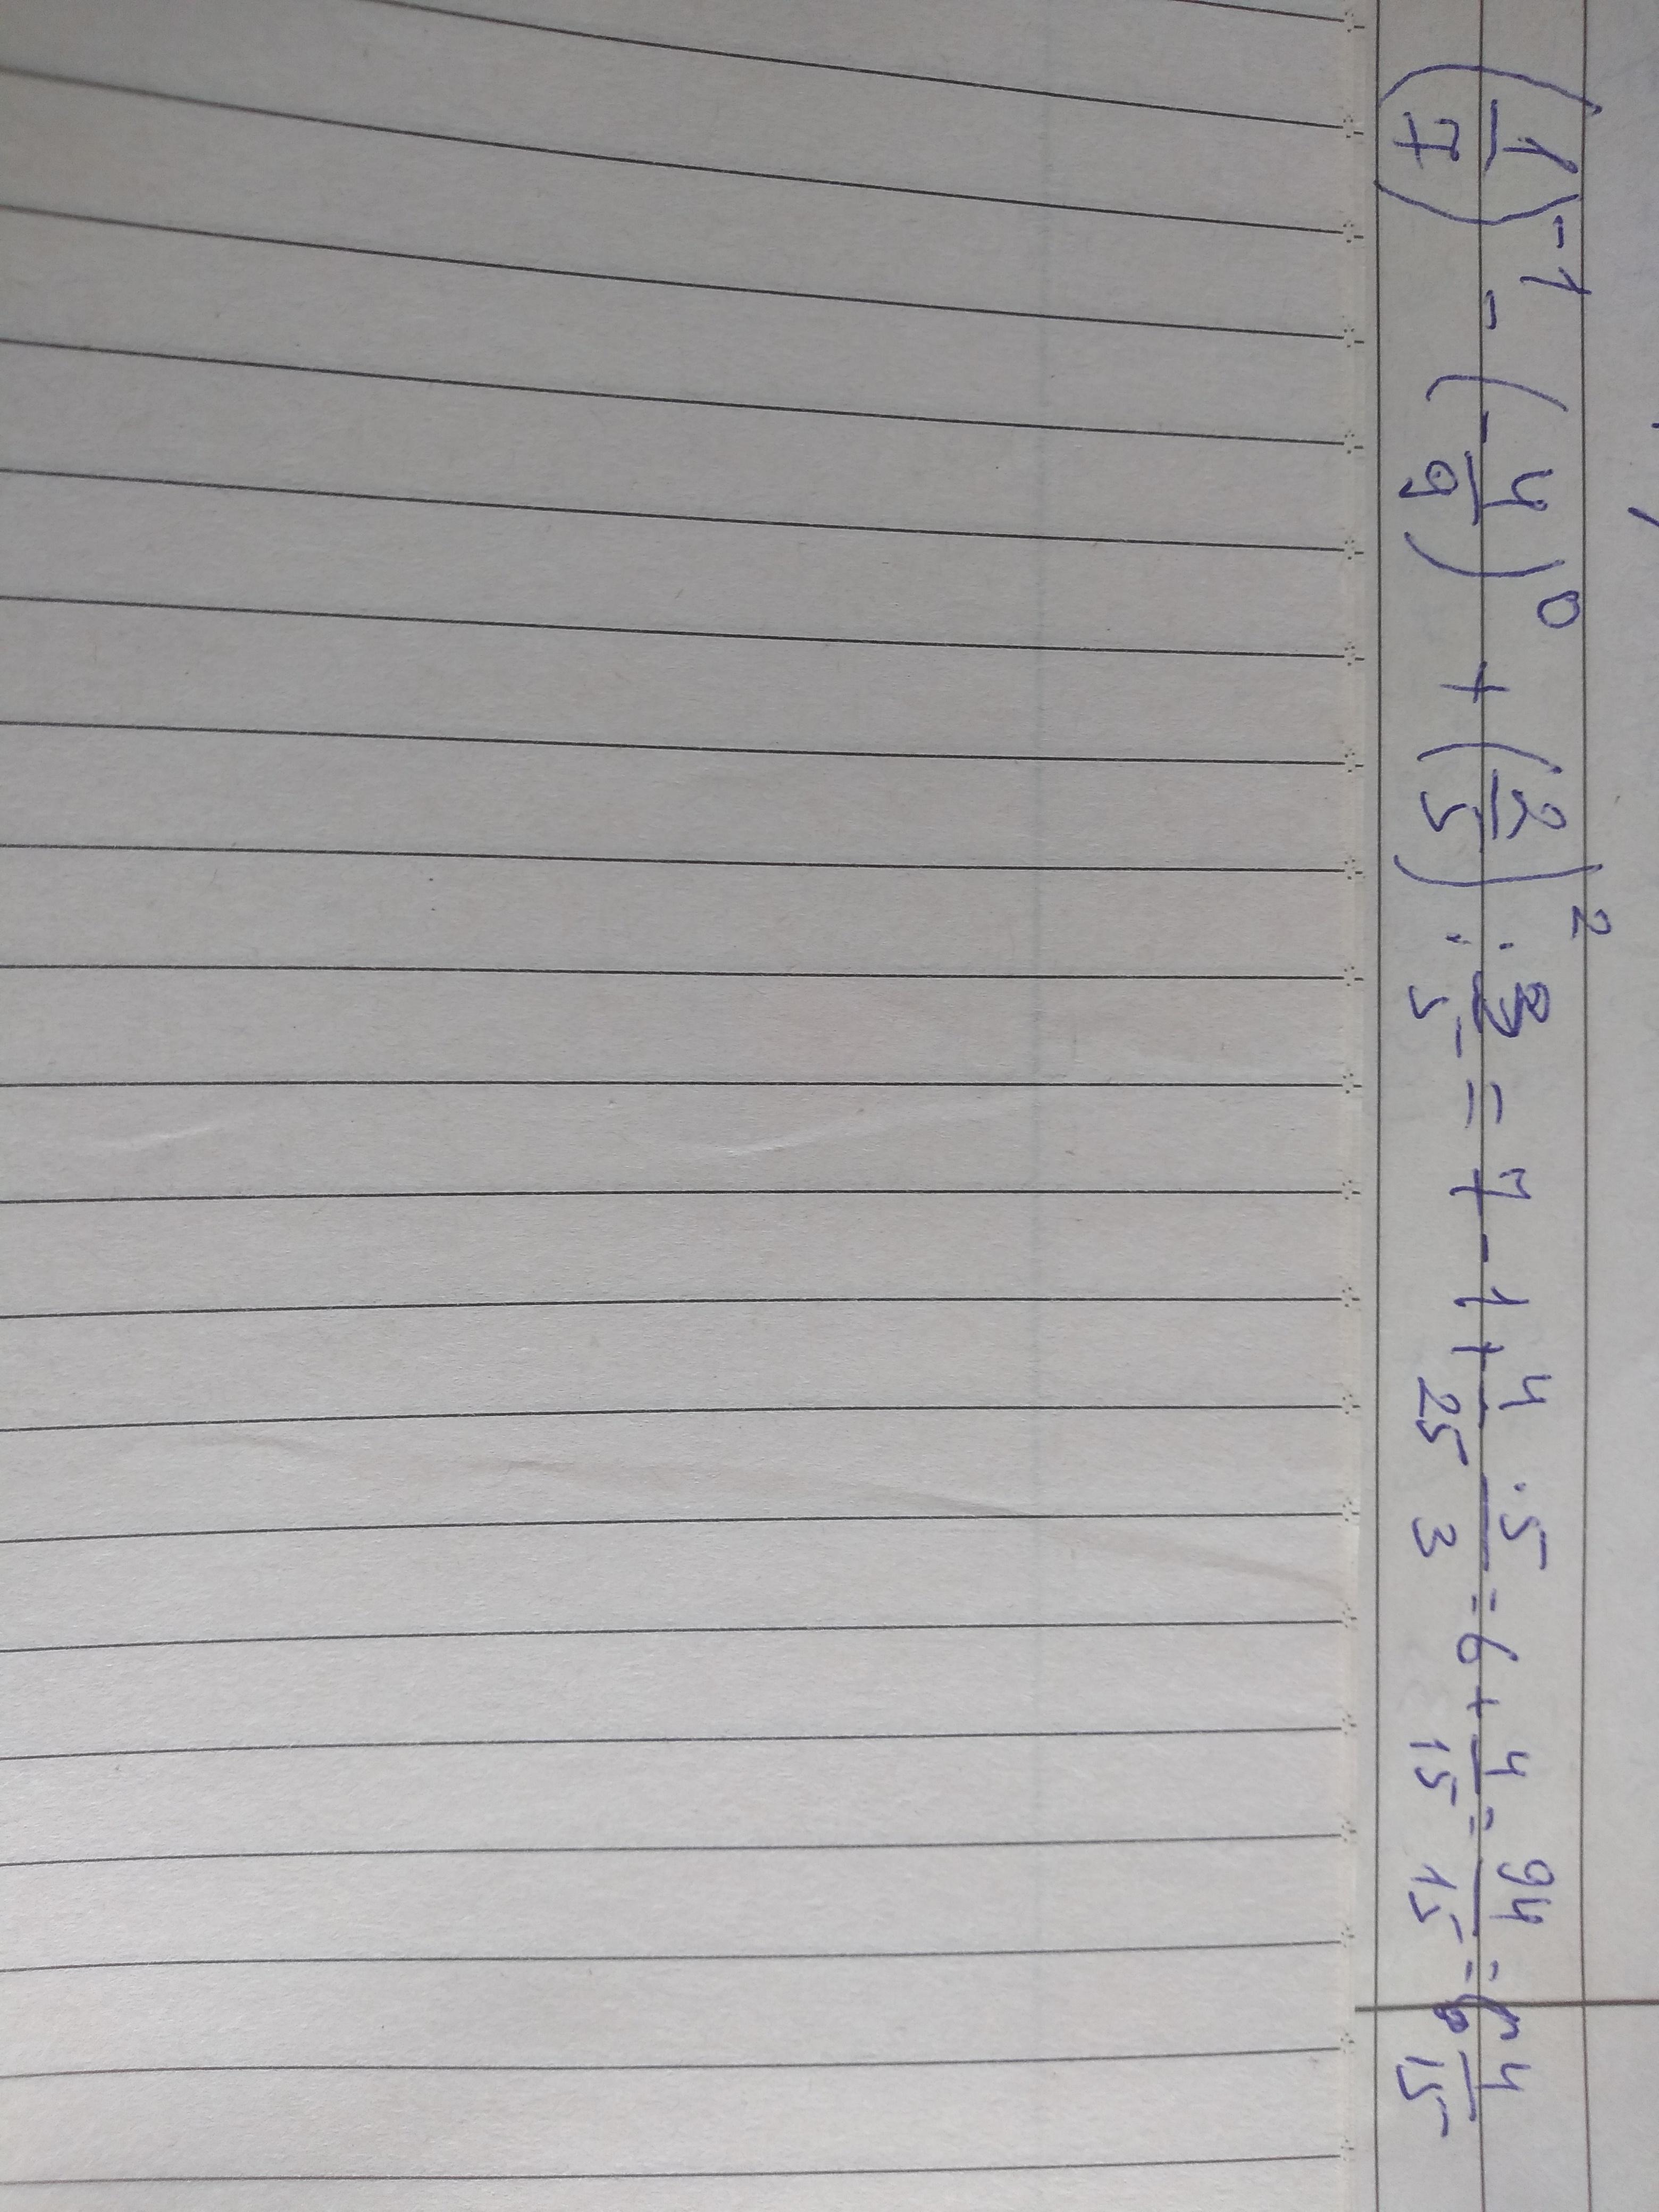 (1/7)^-1 - (-4/9)^0 + (2/5)^2 : 3/5 = 7 - 1 + 4/25 · 5/3 = 6 + 4/15 = 94/15 = 6 4/15